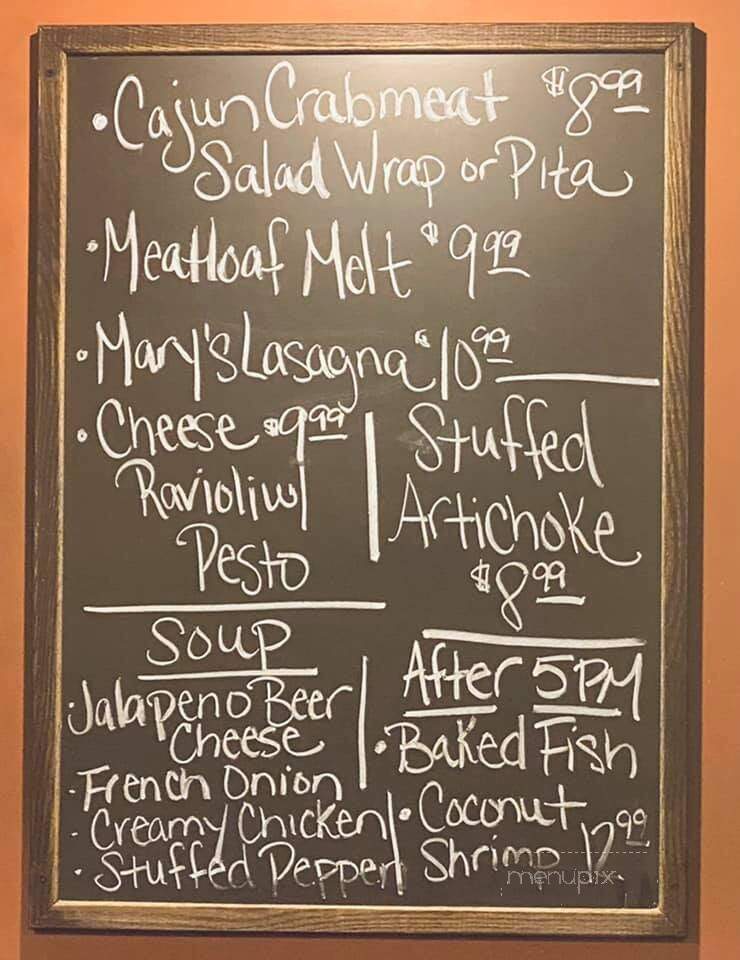 • Cajun Crabmeat $8.99
Salad Wrap or Pita
• Meatloaf Melt $9.99
• Mary's Lasagna $10.99
• Cheese $9.99
Ravioli w/
Pesto
Stuffed
Artichoke
$8.99
Soup
• Jalapeno Beer
Cheese
• French Onion
• Creamy Chicken
• Stuffed Pepper
After 5PM
• Baked Fish
• Coconut
Shrimp 12.99
menupix